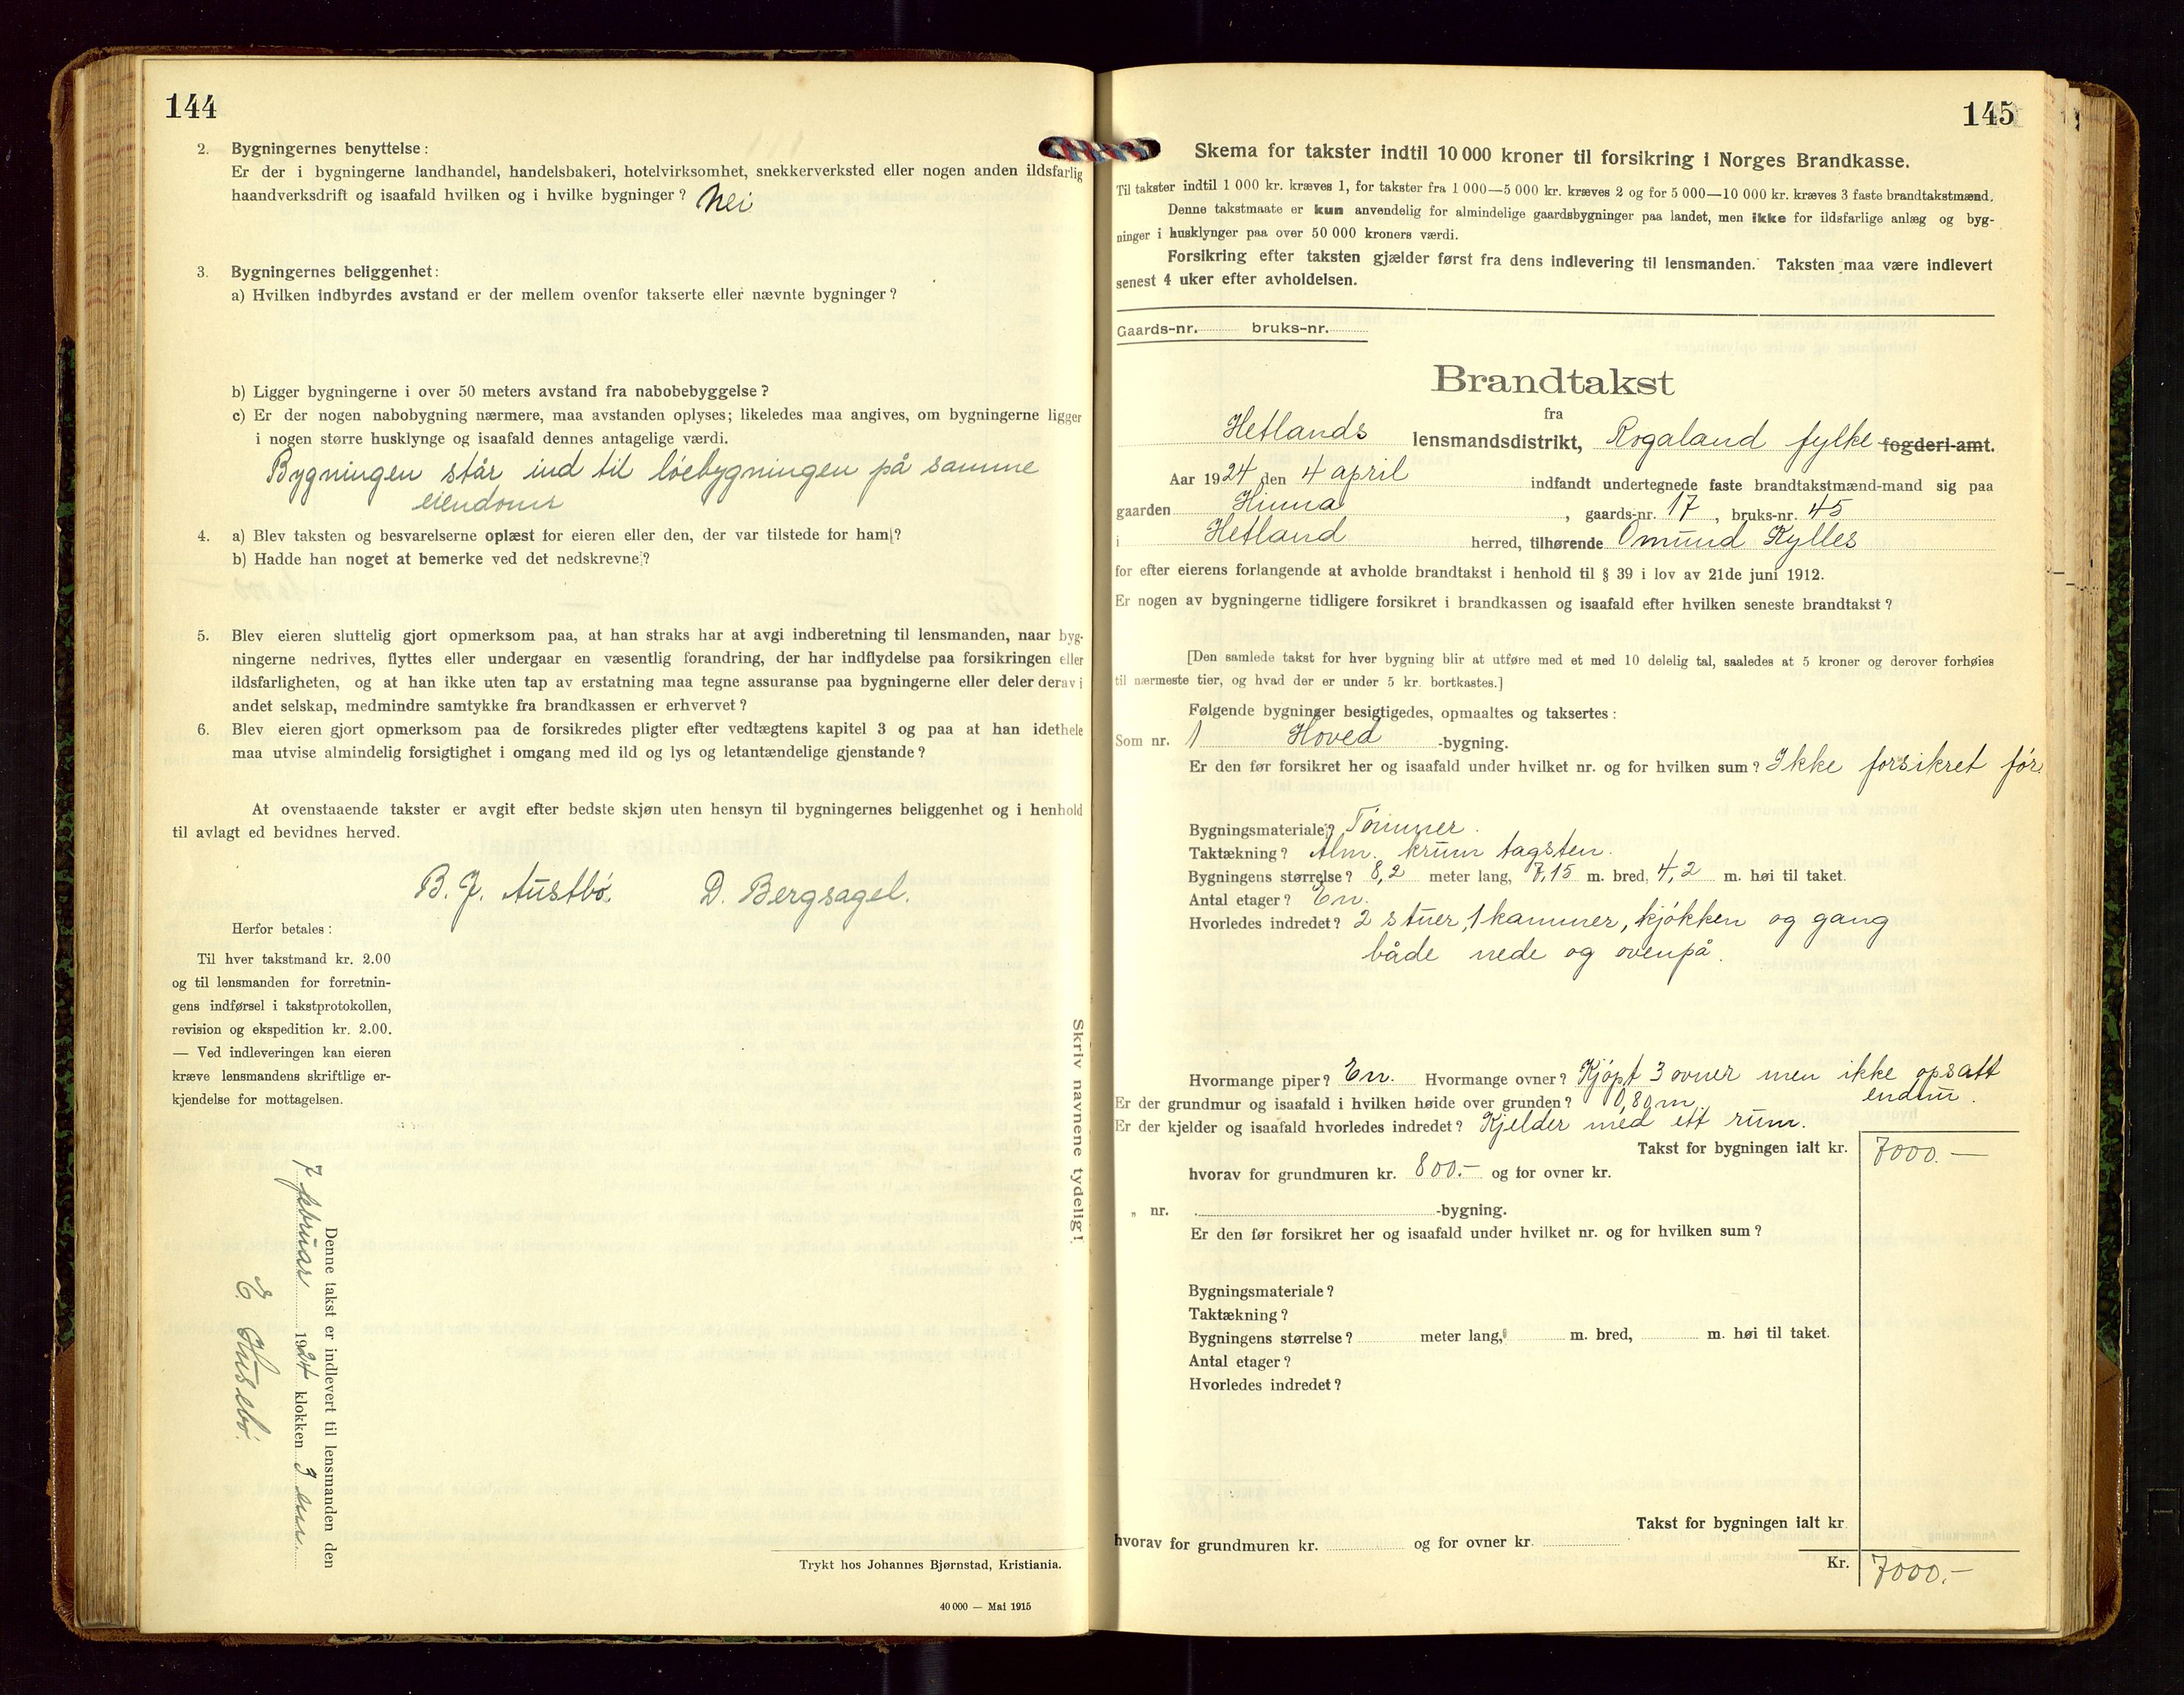 144
2. Bygningernes benyttelse:
Er der i bygningerne landhandel, handelsbakeri, hotelvirksomhet, snekkerverksted eller nogen anden ildsfarlig
haandverksdrift og isaafald hvilken og i hvilke bygninger? Nei
3. Bygningernes beliggenhet:
a) Hvilken indbyrdes avstand er der mellem ovenfor takserte eller nævnte bygninger?
b) Ligger bygningerne i over 50 meters avstand fra nabobebyggelse?
c) Er der nogen nabobygning nærmere, maa avstanden oplyses; likeledes maa angives, om bygningerne ligger
i nogen større husklynge og isaafald dennes antagelige værdi.
Bygningen står ind til löebygningen på samme
eiendom
4. a) Blev taksten og besvarelserne oplæst for eieren eller den, der var tilstede for ham?
b) Hadde han noget at bemerke ved det nedskrevne?
5. Blev eieren sluttelig gjort opmerksom paa, at han straks har at avgi indberetning til lensmanden, naar byg-
ningerne nedrives, flyttes eller undergaar en væsentlig forandring, der har indflydelse paa forsikringen eller
ildsfarligheten, og at han ikke uten tap av erstatning maa tegne assuranse paa bygningerne eller deler derav i
andet selskap, medmindre samtykke fra brandkassen er erhvervet?
6. Blev eieren gjort opmerksom paa de forsikredes pligter efter vedtægtens kapitel 3 og paa at han idethele
maa utvise almindelig forsigtighet i omgang med ild og lys og letantændelige gjenstande?
At ovenstaaende takster er avgit efter bedste skjøn uten hensyn til bygningernes beliggenhet og i henhold
til avlagt ed bevidnes herved.
B. J. Austbö. D. Bergsagel.
Herfor betales:
Til hver takstmand kr. 2.00
og til lensmanden for forretnin-
gens indførsel i takstprotokollen,
revision og ekspedition kr. 2.00.
— Ved indleveringen kan eieren
kræve lensmandens skriftlige er-
kjendelse for mottagelsen.
Denne takst er indlevert til lensmanden den
7 februar 1924 klokken 3 em.
E. Husebö.
Skriv navnene tydelig!
Trykt hos Johannes Bjørnstad, Kristiania.
40 000 — Mai 1915
145
Skema for takster indtil 10 000 kroner til forsikring i Norges Brandkasse.
Til takster indtil 1 000 kr. kræves 1, for takster fra 1 000—5 000 kr. kræves 2 og for 5 000—10 000 kr. kræves 3 faste brandtakstmænd.
Denne takstmaate er kun anvendelig for almindelige gaardsbygninger paa landet, men ikke for ildsfarlige anlæg og byg-
ninger i husklynger paa over 50 000 kroners værdi.
Forsikring efter taksten gjælder først fra dens indlevering til lensmanden. Taksten maa være indlevert
senest 4 uker efter avholdelsen.
Gaards-nr. bruks-nr.
Brandtakst
fra
Hetlands lensmandsdistrikt, Rogaland fylke fogderi-amt.
Aar 1924 den 4 april indfandt undertegnede faste brandtakstmænd-mand sig paa
gaarden Hinna, gaards-nr. 17, bruks-nr. 45
i Hetland herred, tilhørende Omund Kylles
for efter eierens forlangende at avholde brandtakst i henhold til § 39 i lov av 21de juni 1912.
Er nogen av bygningerne tidligere forsikret i brandkassen og isaafald efter hvilken seneste brandtakst?
[Den samlede takst for hver bygning blir at utføre med et med 10 delelig tal, saaledes at 5 kroner og derover forhøies
til nærmeste tier, og hvad der er under 5 kr. bortkastes.]
Følgende bygninger besigtigedes, opmaaltes og taksertes:
Som nr. 1 Hoved -bygning.
Er den før forsikret her og isaafald under hvilket nr. og for hvilken sum? Ikke forsikret för
Bygningsmateriale? Tömmer.
Taktækning? Alm. krum tagsten.
Bygningens størrelse? 8,2 meter lang, 7,15 m. bred, 4,2 m. høi til taket.
Antal etager? En.
Hvorledes indredet? 2 stuer, 1 kammer, kjökken og gang
både nede og ovenpå.
Hvormange piper? En. Hvormange ovner? Kjöpt 3 ovner men ikke opsatt
endnu.
Er der grundmur og isaafald i hvilken høide over grunden? 0,80 m
Er der kjelder og isaafald hvorledes indredet? Kjelder med ett rum.
Takst for bygningen ialt kr. 7000.—
hvorav for grundmuren kr. 800.- og for ovner kr.
„ nr. -bygning.
Er den før forsikret her og isaafald under hvilket nr. og for hvilken sum?
Bygningsmateriale?
Taktækning?
Bygningens størrelse? meter lang, m. bred, m. høi til taket.
Antal etager?
Hvorledes indredet?
Takst for bygningen ialt kr.
hvorav for grundmuren kr. og for ovner kr.
Kr. 7000.-